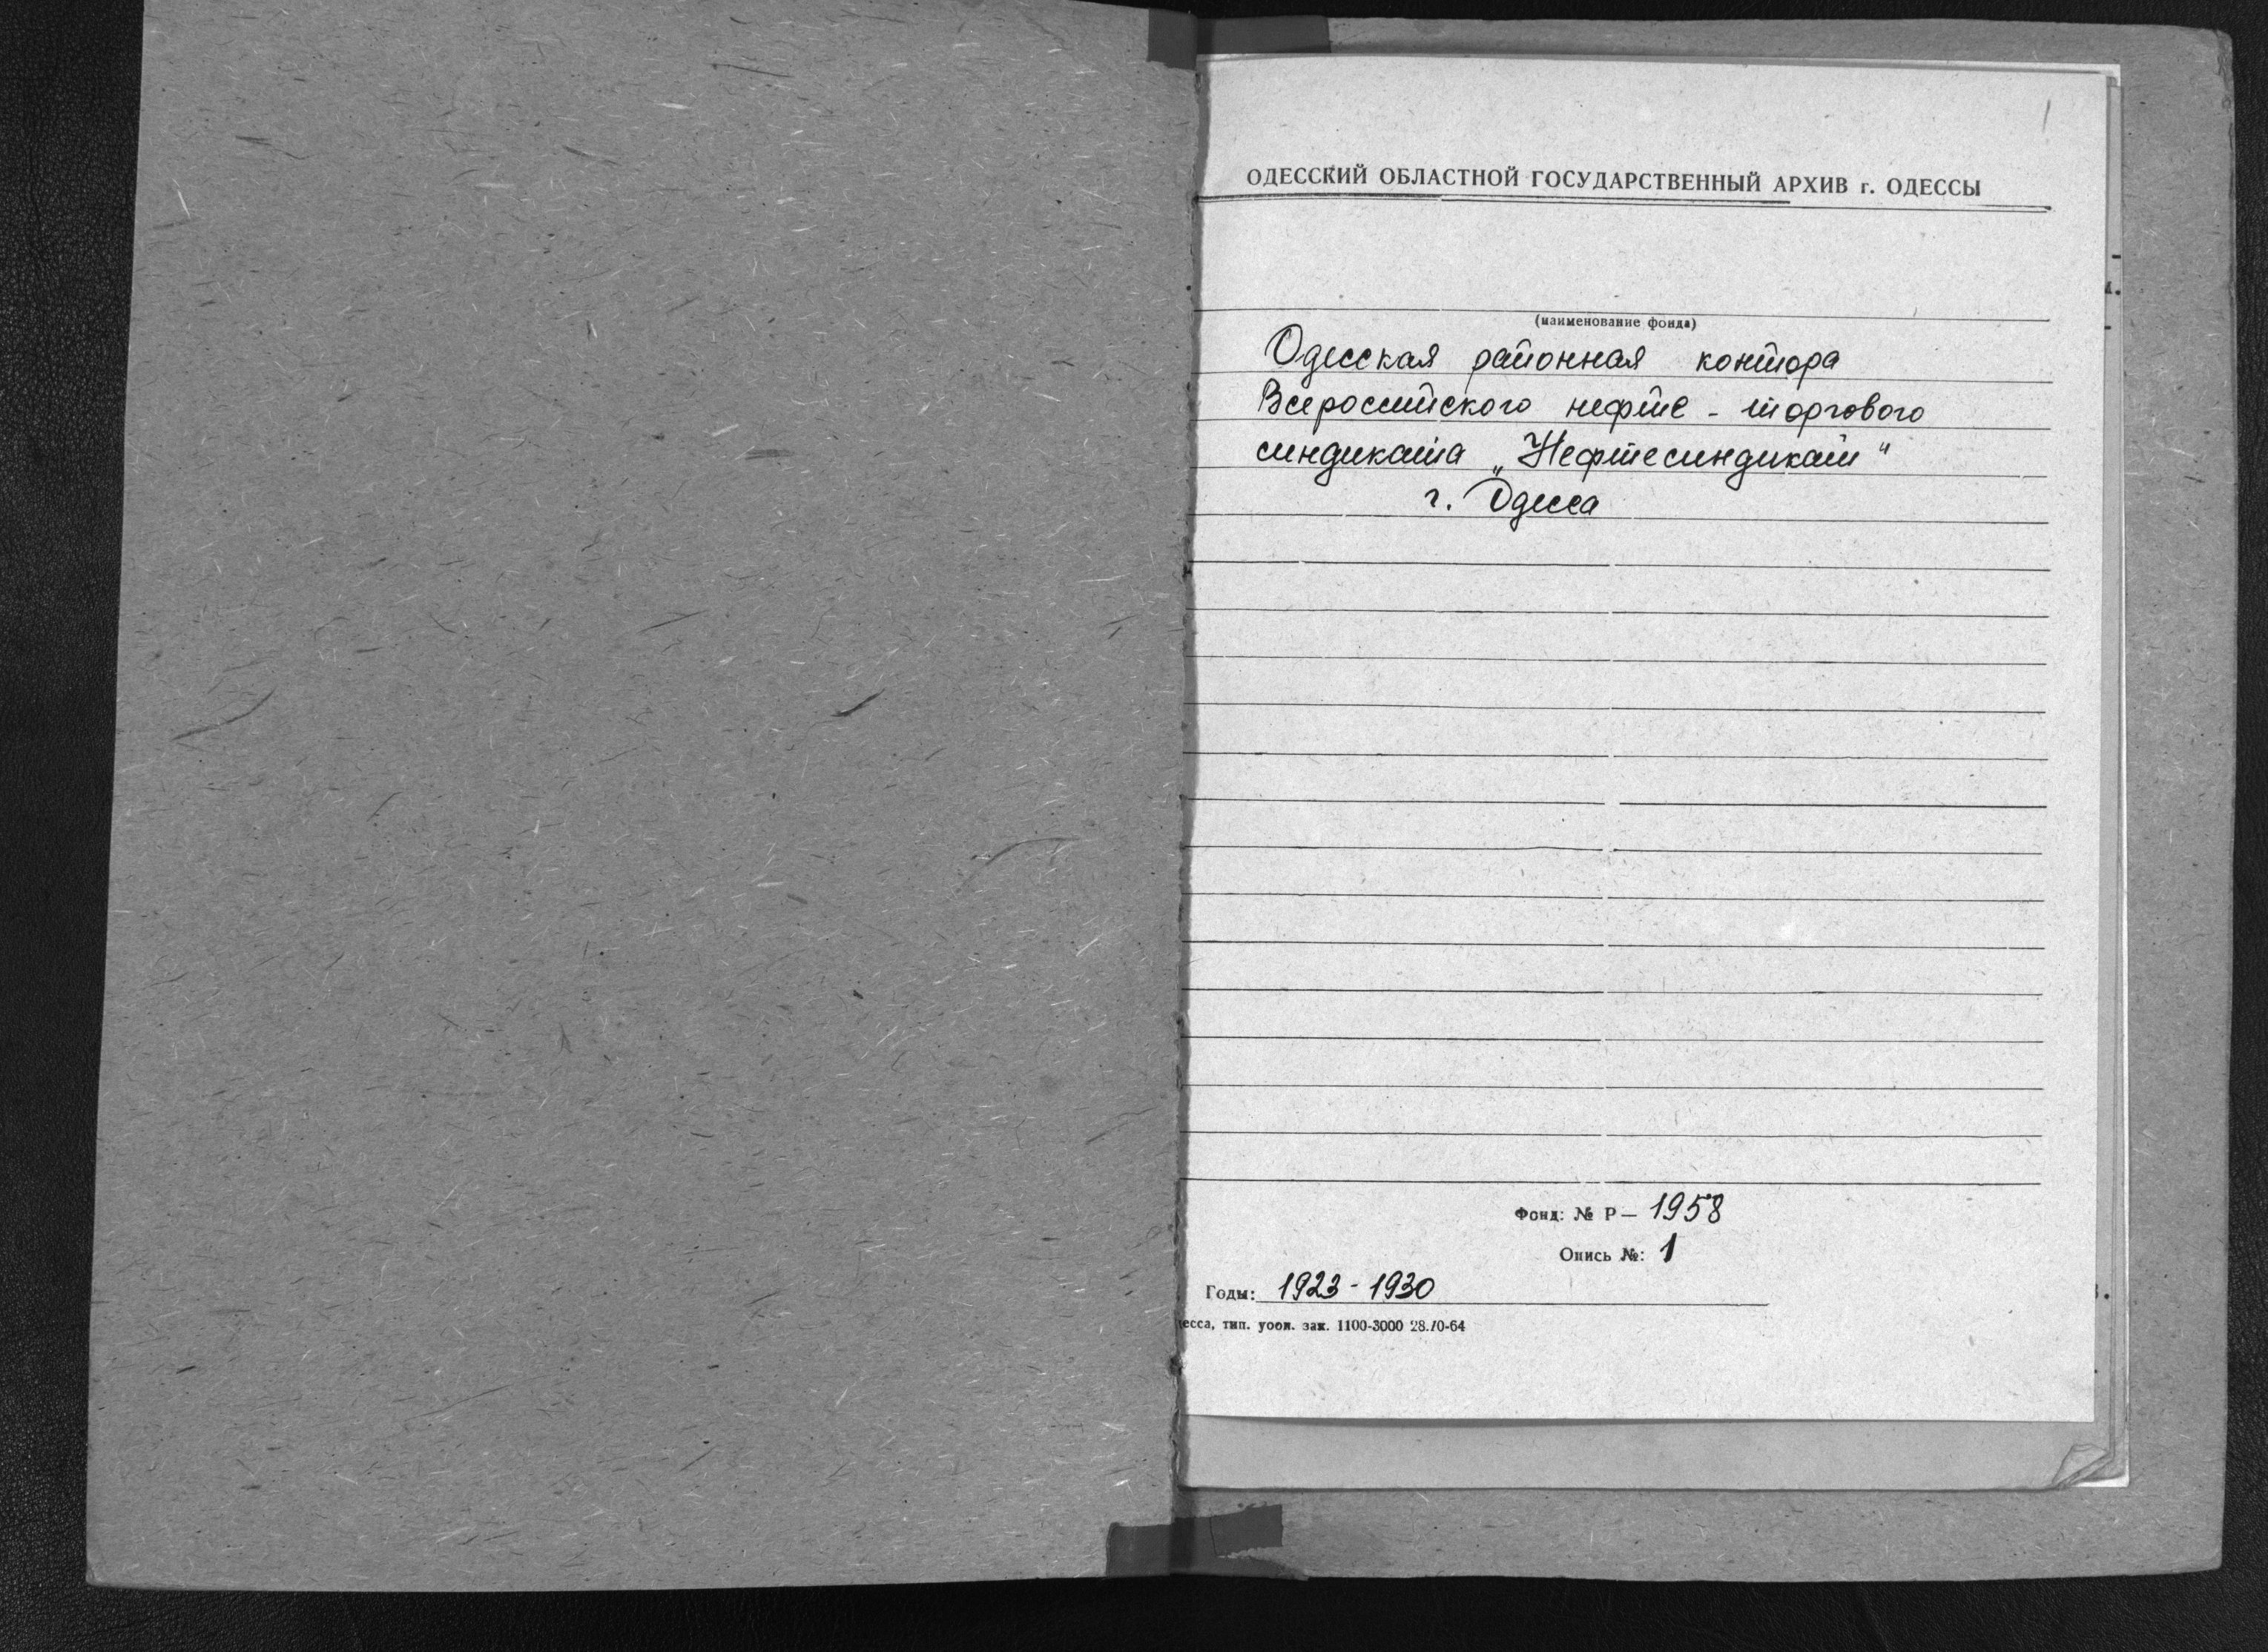 1
ОДЕССКИЙ ОБЛАСТНОЙ ГОСУДАРСТВЕННЫЙ АРХИВ г. ОДЕССЫ
(наименование фонда)
Одесская районная контора
Всероссийского нефте - торгового
синдиката „Нефтесиндикат"
г. Одесса
Фонд: № Р— 1958
Опись №: 1
Годы: 1923 - 1930
десса, тип. уоои. зак. 1100-3000 28.10-64